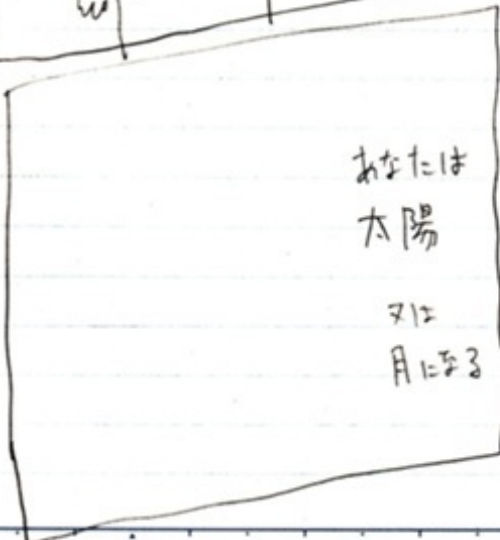 あなたは
太陽
又は
月になる